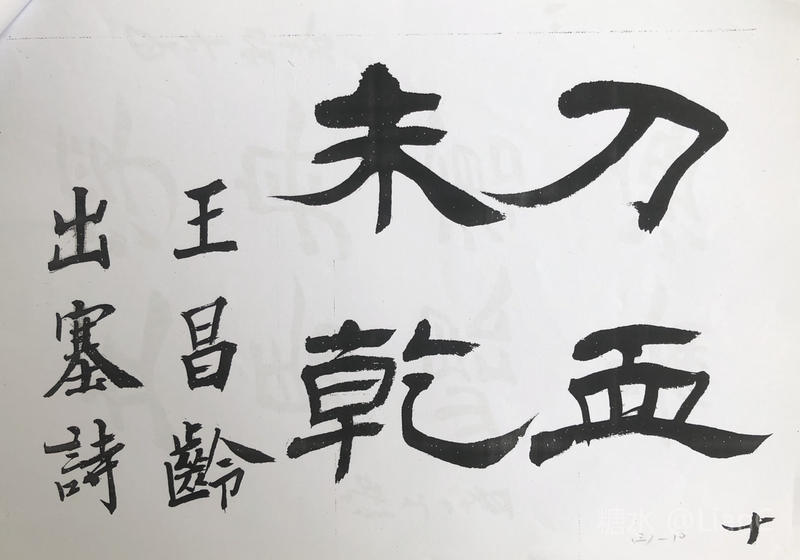 刀血
未乾
王昌齡
出塞詩
十
糖水